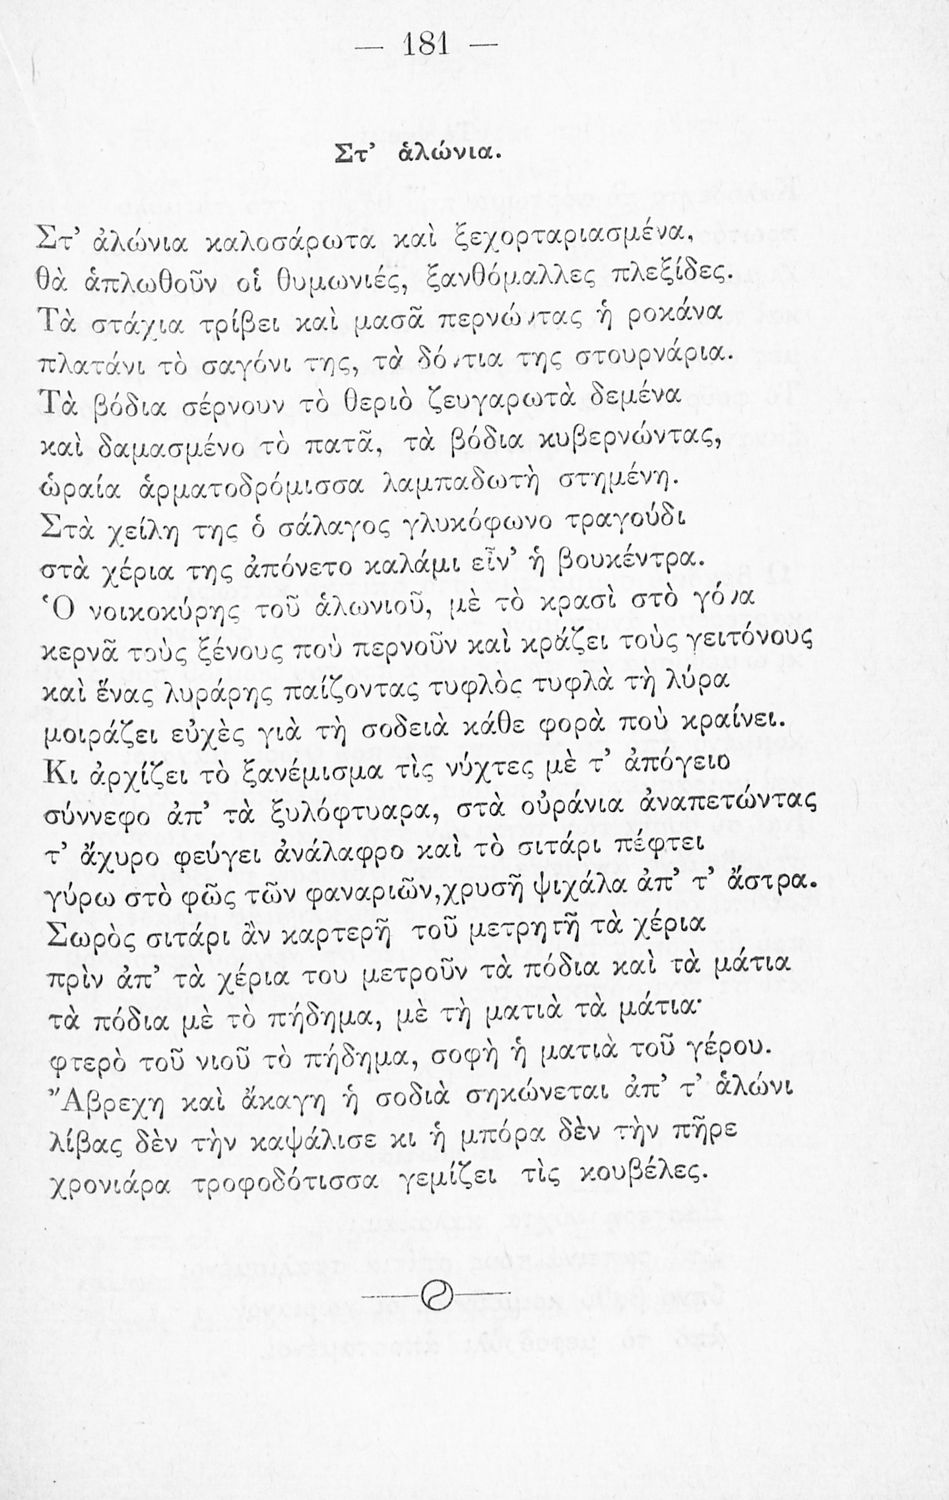 — 181 —
Στ’ ἁλώνια.
Στ’ ἁλώνια καλοσάρωτα καὶ ξεχορταριασμένα,
θὰ ἁπλωθοῦν οἱ θυμωνιές, ξανθόμαλλες πλεξίδες.
Τὰ στάχια τρίβει καὶ μασᾶ περνώντας ἡ ροκάνα
πλατάνι τὸ σαγόνι της, τὰ δόντια της στουρνάρια.
Τὰ βόδια σέρνουν τὸ θεριὸ ζευγαρωτὰ δεμένα
καὶ δαμασμένο τὸ πατᾶ, τὰ βόδια κυβερνώντας,
ὡραία ἁρματοδρόμισσα λαμπαδωτὴ στημένη.
Στὰ χείλη της ὁ σάλαγος γλυκόφωνο τραγούδι
στὰ χέρια της ἀπόνετο καλάμι εἶν’ ἡ βουκέντρα.
Ὁ νοικοκύρης τοῦ ἁλωνιοῦ, μὲ τὸ κρασὶ στὸ γόνα
κερνᾶ τοὺς ξένους ποὺ περνοῦν καὶ κράζει τοὺς γειτόνους
καὶ ἕνας λυράρης παίζοντας τυφλὸς τυφλὰ τὴ λύρα
μοιράζει εὐχὲς γιὰ τὴ σοδειὰ κάθε φορὰ ποὺ κραίνει.
Κι ἀρχίζει τὸ ξανέμισμα τὶς νύχτες μὲ τ’ ἀπόγειο
σύννεφο ἀπ’ τὰ ξυλόφτυαρα, στὰ οὐράνια ἀναπετώντας
τ’ ἄχυρο φεύγει ἀνάλαφρο καὶ τὸ σιτάρι πέφτει
γύρω στὸ φῶς τῶν φαναριῶν,χρυσῆ ψιχάλα ἀπ’ τ’ ἄστρα.
Σωρὸς σιτάρι ἂν καρτερῆ τοῦ μετρητῆ τὰ χέρια
πρὶν ἀπ’ τὰ χέρια του μετροῦν τὰ πόδια καὶ τὰ μάτια
τὰ πόδια μὲ τὸ πήδημα, μὲ τὴ ματιὰ τὰ μάτια·
φτερὸ τοῦ νιοῦ τὸ πήδημα, σοφὴ ἡ ματιὰ τοῦ γέρου.
Ἄβρεχη καὶ ἄκαγη ἡ σοδιὰ σηκώνεται ἀπ’ τ’ ἁλώνι
λίβας δὲν τὴν καψάλισε κι ἡ μπόρα δὲν τὴν πῆρε
χρονιάρα τροφοδότισσα γεμίζει τὶς κουβέλες.